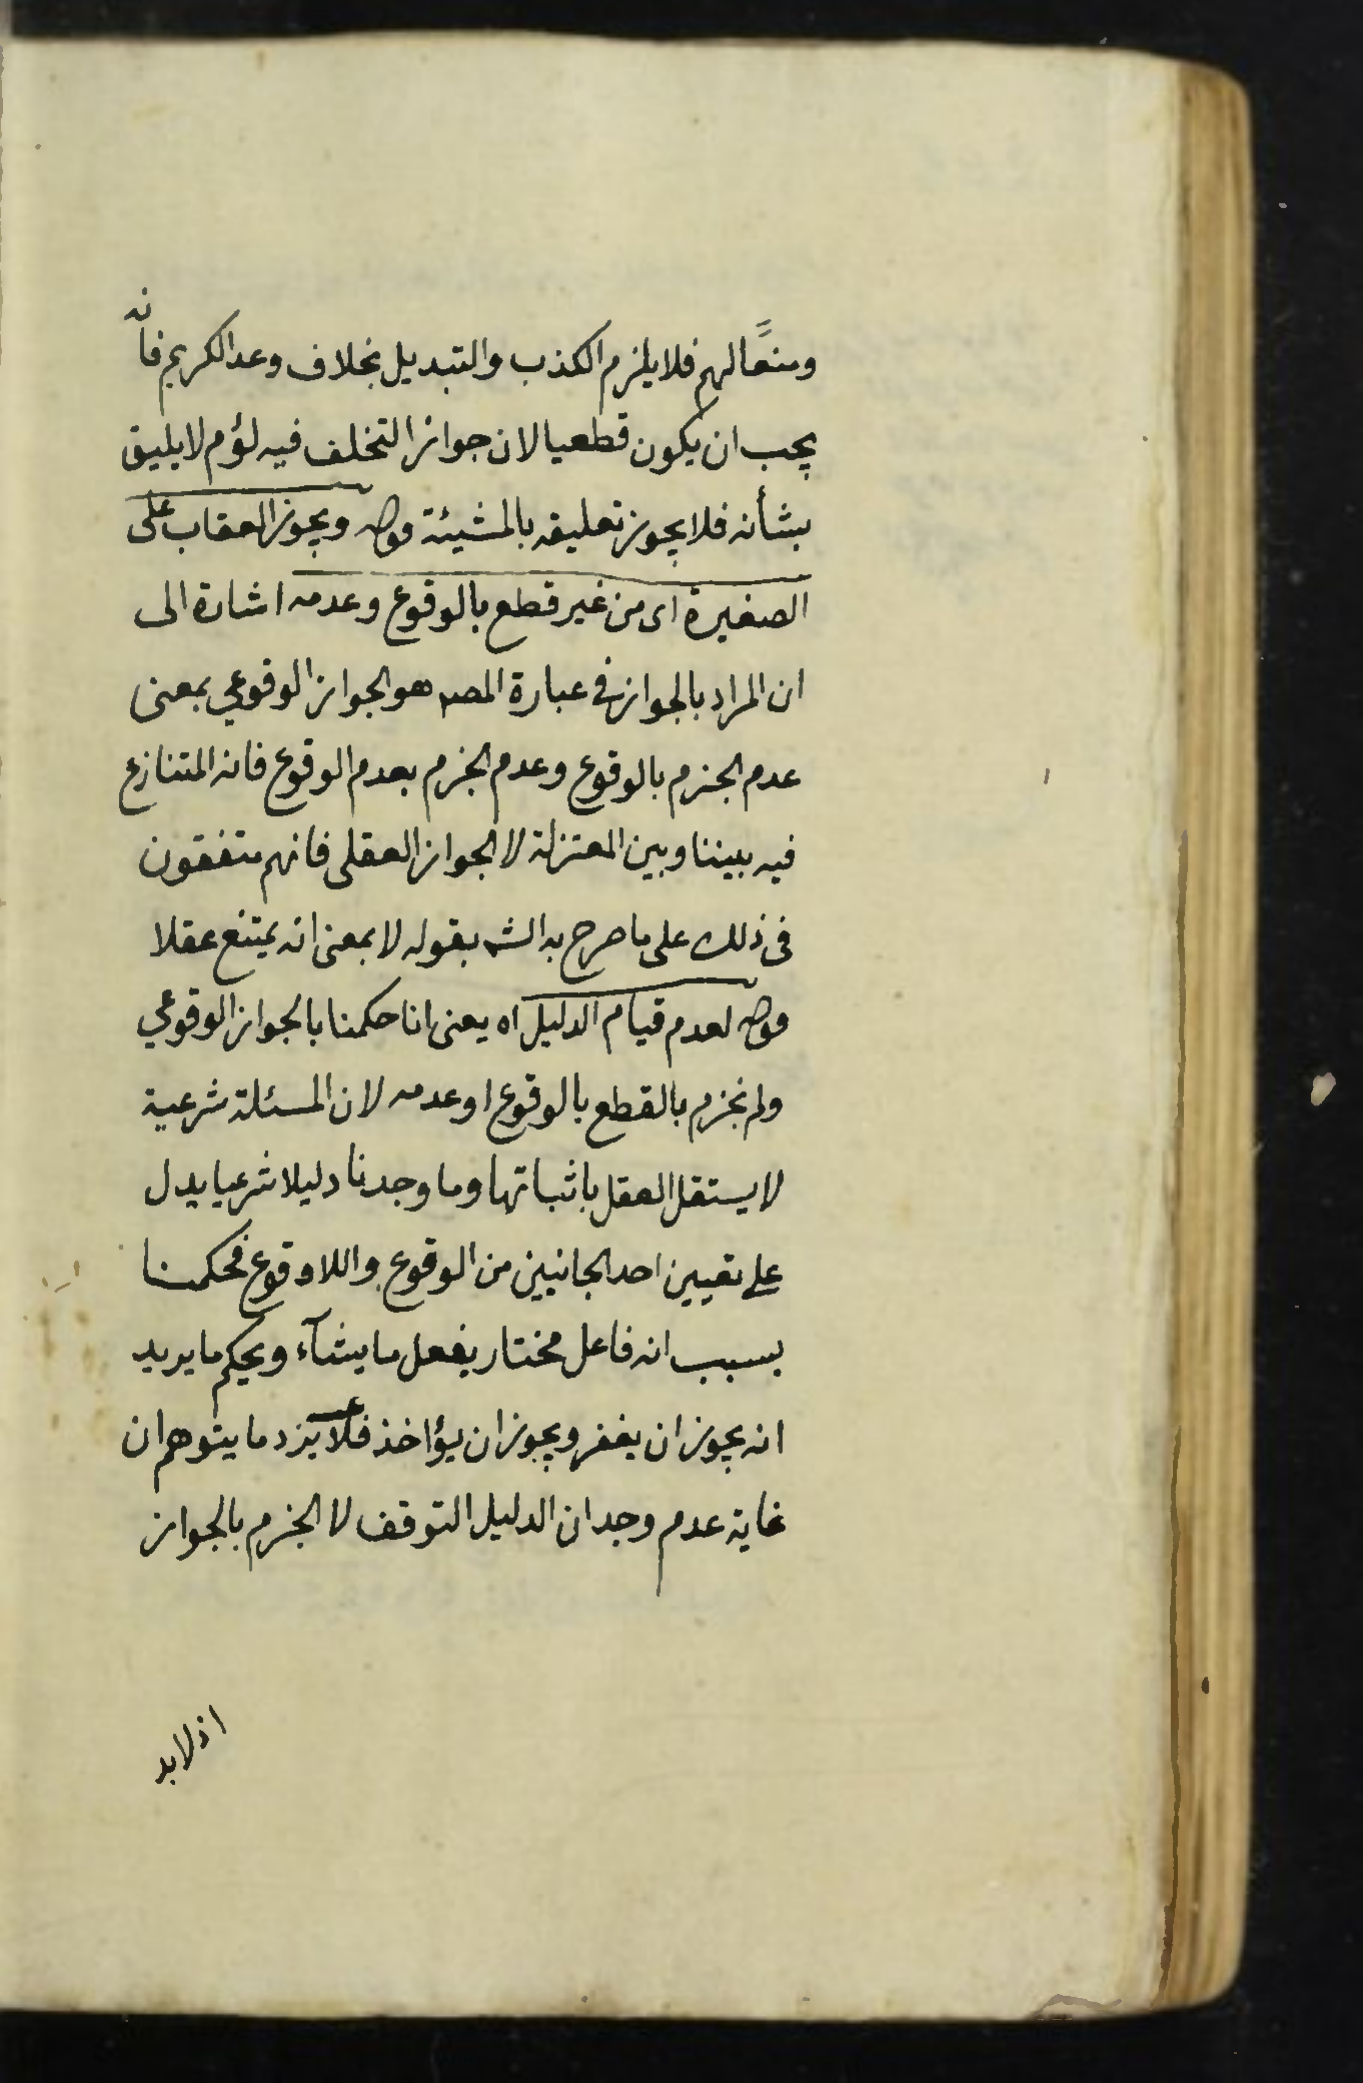 ومنعًا لهم فلا يلزم الكذب والتبديل بخلاف وعد الكريم فانه
يجب ان يكون قطعيا لان جواز التخلف فيه لؤم لا يليق
بشأنه فلا يجوز تعليقه بالمشيئة قوله ويجوز العقاب على
الصغيرة اى من غير قطع بالوقوع وعدمه اشارة الى
ان المراد بالجواز فى عبارة المصـ هو الجواز الوقوعي بمعنى
عدم الجزم بالوقوع وعدم الجزم بعدم الوقوع فانه المتنازع
فيه بيننا وبين المعتزلة لا الجواز العقلى فانهم متفقون
فى ذلك على ما صرح به الشـ بقوله لا بمعنى انه يمتنع عقلا
قوله لعدم قيام الدليل اه يعنى انا حكمنا بالجواز الوقوعي
ولم نجزم بالقطع بالوقوع او عدمه لان المسئلة شرعية
لا يستقل العقل باثباتها وما وجدنا دليلا شرعيا يدل
على تعيين احد الجانبين من الوقوع واللاوقوع فحكمنا
بسبب انه فاعل مختار يفعل ما يشآء ويحكم ما يريد
انه يجوز ان يغفر ويجوز ان يؤاخذ فلا يرد ما يتوهم ان
غاية عدم وجدان الدليل التوقف لا الجزم بالجواز
اذ لا بد